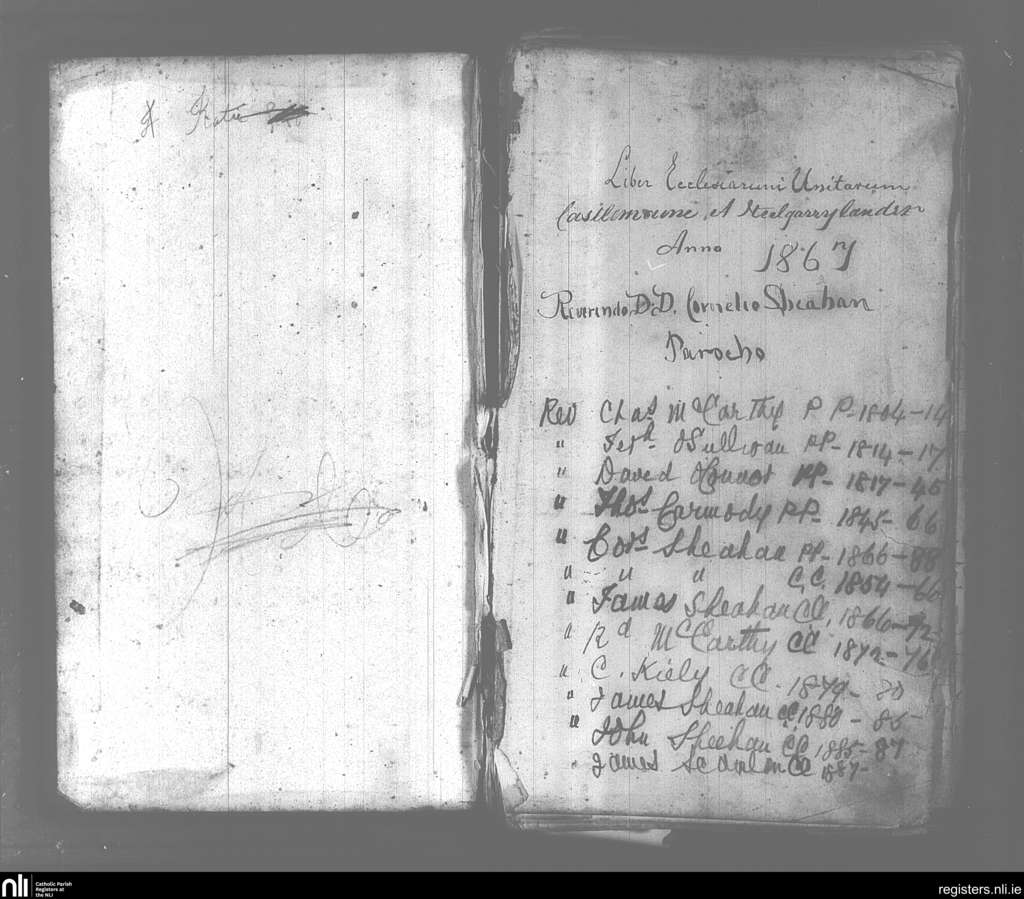 Katie
Liber Ecclesiarum Unitarum
Anno 1867
Reverindo D.D. Cornelio Sheahan
Parocho
Rev Chas McCarthy P P - 1804 - 14
" O'Sullivan PP - 1814 - 17
" David PP - 1817 - 45
" Thos Carmody PP - 1845 - 66
" Cors Sheahan PP - 1866 - 88
" " " C.C. 1854 - 66
" James Sheahan CC, 1866 - 72
" Rd McCarthy CC 1872 - 76
" C. Kiely CC - 1879 - 80
" James Sheahan CC 1880 - 85
" John Sheehan CC 1885 - 87
" James Scanlon CC 1887 -
nli
Catholic Parish
Registers at
the NLI
registers.nli.ie